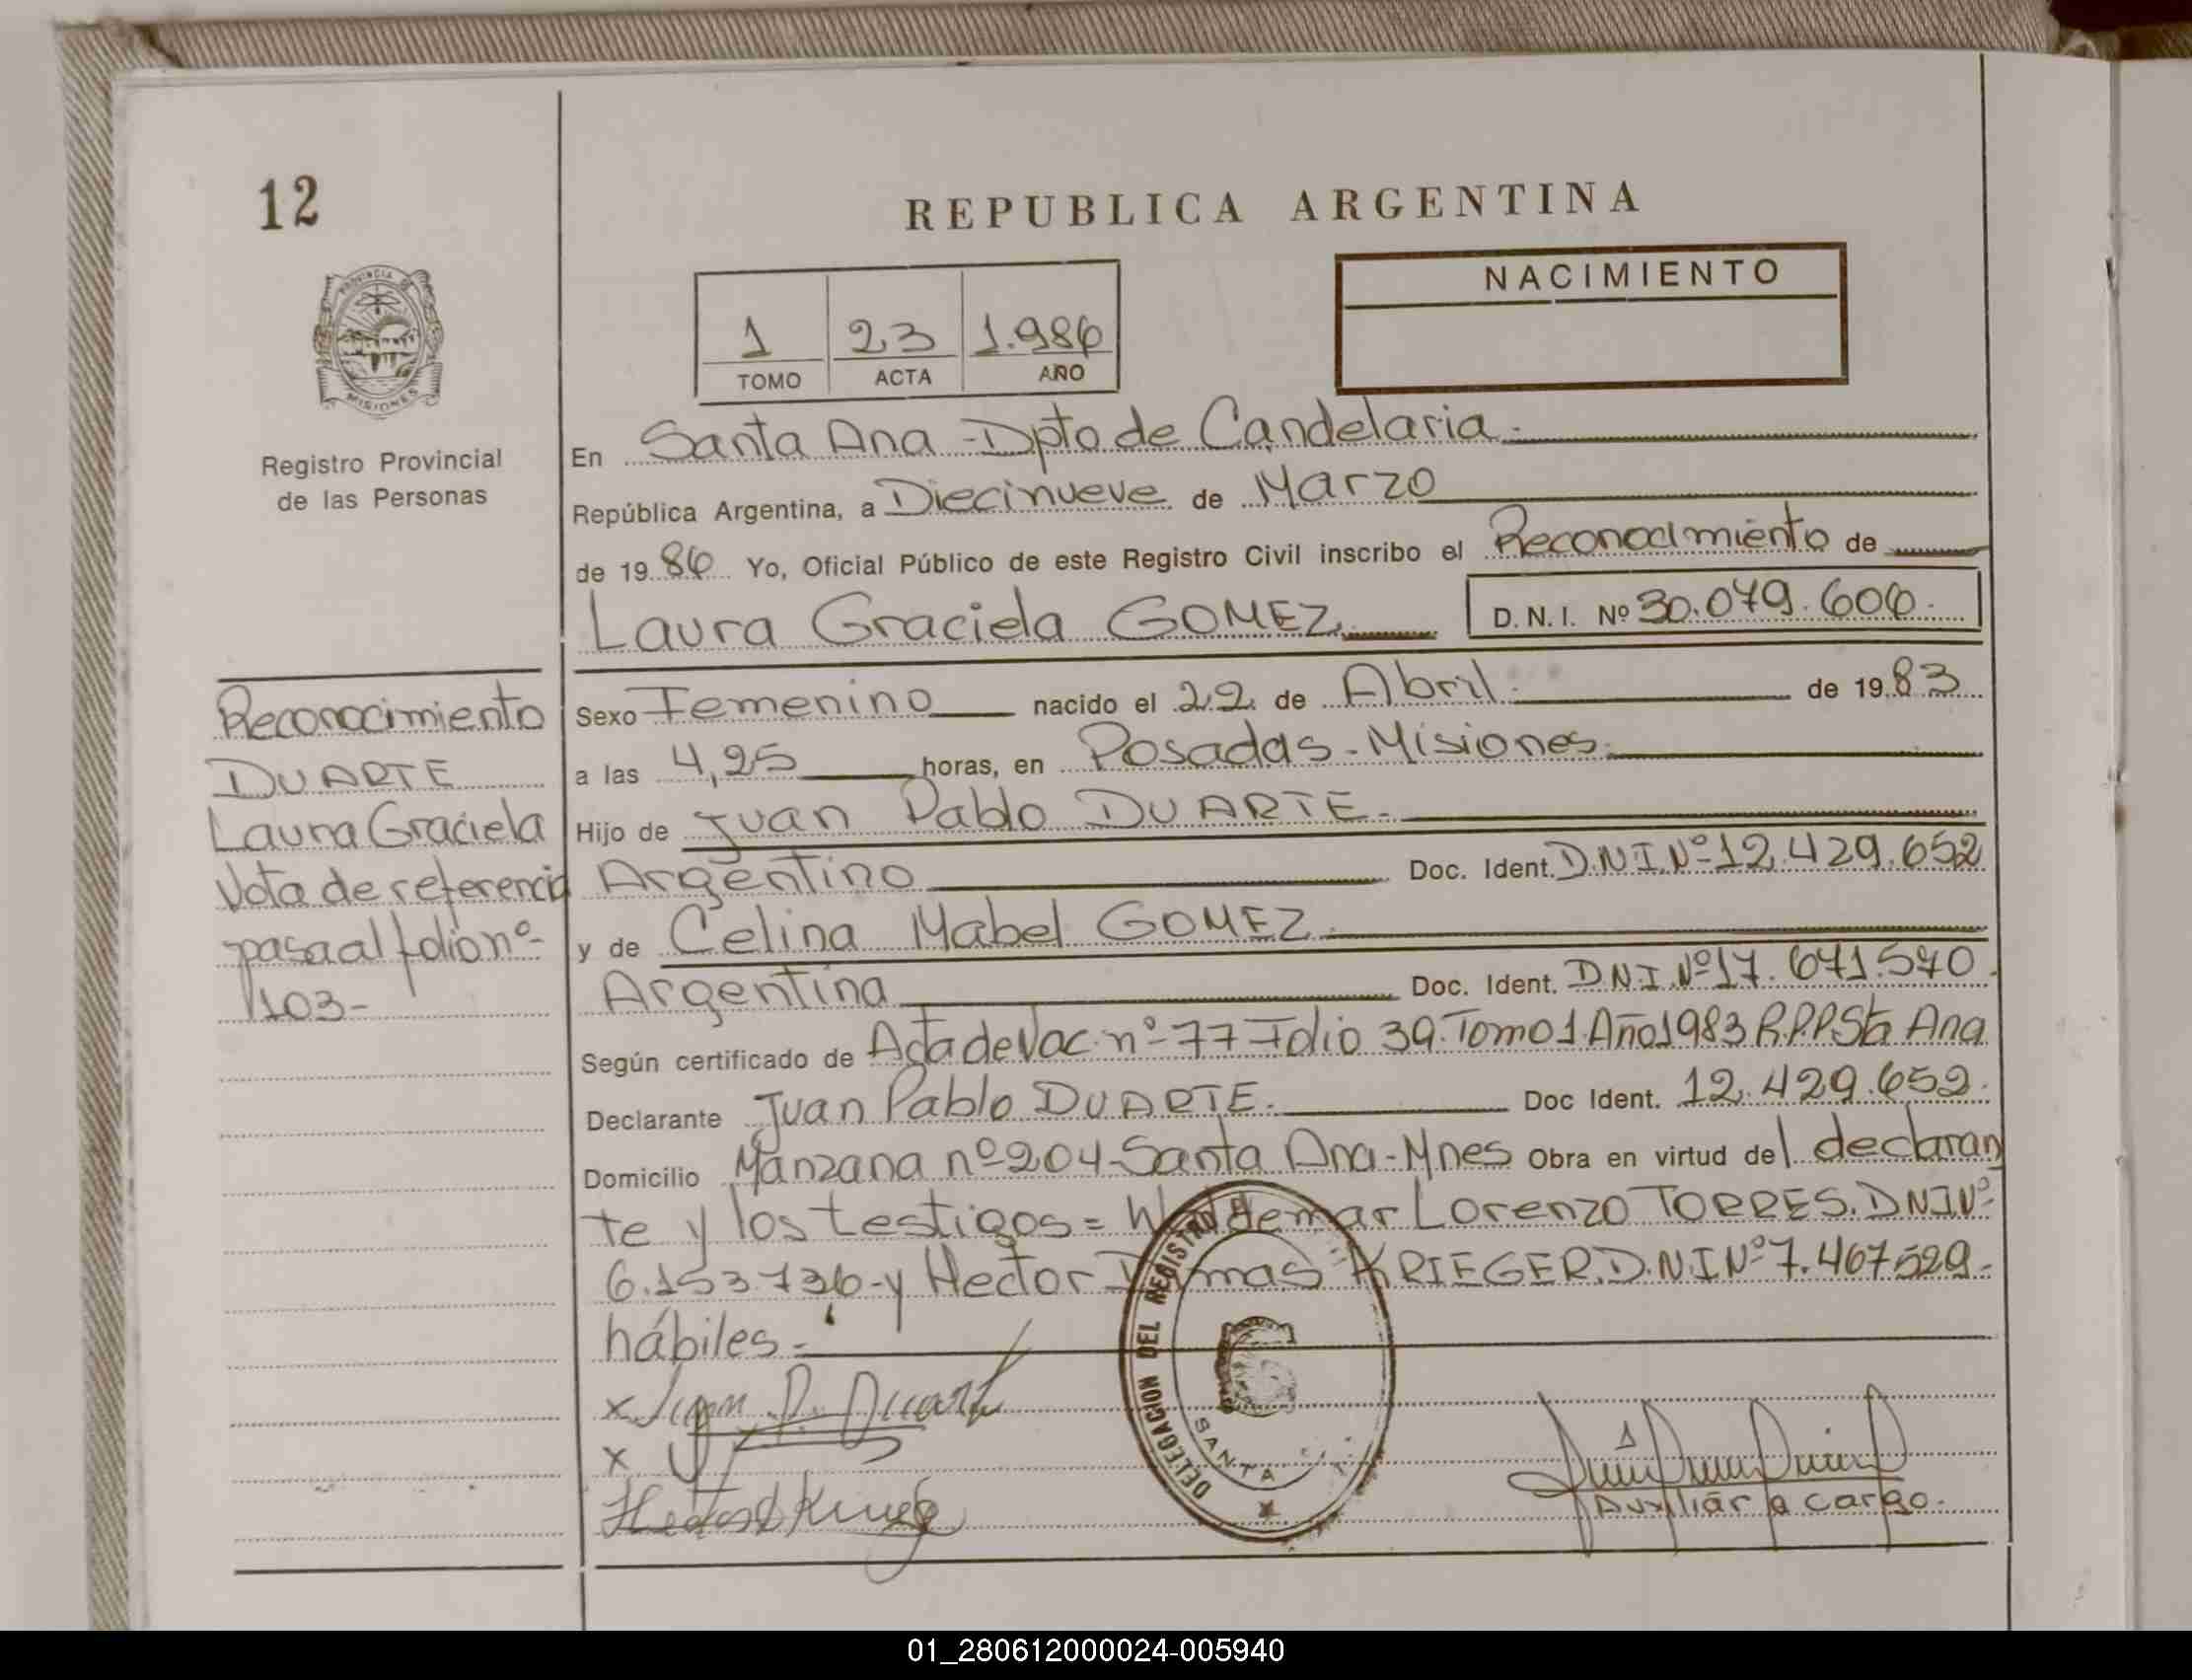 12
REPUBLICA ARGENTINA
NACIMIENTO
1 23 1.986
TOMO ACTA AÑO
PROVINCIA
MISIONES
Registro Provincial
de las Personas
En Santa Ana - Dpto de Candelaria.-
República Argentina, a Diecinueve de Marzo
de 1986 Yo, Oficial Público de este Registro Civil inscribo el Reconocimiento de
Laura Graciela GOMEZ. D.N.I. Nº 30.079.606.
Sexo Femenino nacido el 22 de Abril. de 1983
a las 4,25 horas, en Posadas - Misiones.
Hijo de Juan Pablo DUARTE.-
Argentino Doc. Ident. D.N.I.Nº 12.429.652
y de Celina Mabel GOMEZ.
Argentina Doc. Ident. D.N.I.Nº 17.671.570.
Según certificado de Acta de Nac. nº 77 Folio 39. Tomo 1. Año 1983 R.P.P. Sta Ana
Declarante Juan Pablo DUARTE. Doc Ident. 12.429.652.
Domicilio Manzana nº 204 - Santa Ana - Mnes Obra en virtud del declaran
te y los testigos = Waldemar Lorenzo TORRES. DNI Nº
6.153.736 - y Hector KRIEGER. D.N.I Nº 7.467.529.-
hábiles =
Reconocimiento
DUARTE
Laura Graciela
Nota de referencia
pasa al folio nº-
103-
x Juan P. Duarte
x
DELEGACION DEL REGISTRO
SANTA
Auxiliar a cargo.
01_280612000024-005940